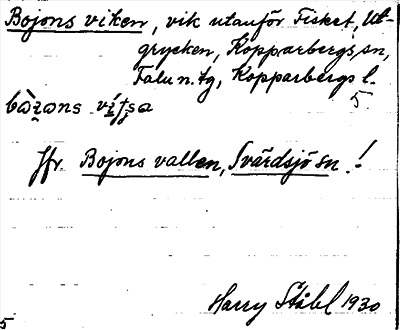 Bojons viken, vik utanför Fisket, Ut-
grycken, Kopparbergs sn,
Falu n. tg, Kopparbergs l.
5.
Jfr. Bojons vallen, Svärdsjö sn!
Harry Ståhl 1930
5